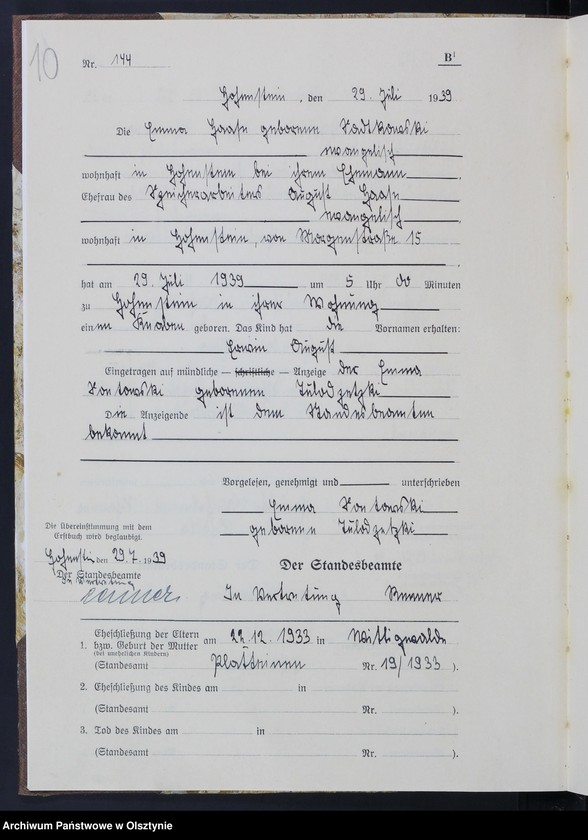 10
Nr. 144 B¹
Hohenstein, den 29. Juli 1939
Die Emma Haase geborenen
evangelisch
wohnhaft in Hohenstein bei ihrem Ehemann
Ehefrau des Speicherarbeiters August Haase
evangelisch
wohnhaft in Hohenstein, von Morgenstraße 15
hat am 29. Juli 1939 um 5 Uhr 00 Minuten
zu Hohenstein in ihrer Wohnung
einen Knaben geboren. Das Kind hat die Vornamen erhalten:
Erwin August
Eingetragen auf mündliche — schriftliche — Anzeige der Emma
geborenen
Die Anzeigende ist dem Standesbeamten
bekannt
Vorgelesen, genehmigt und unterschrieben
Emma
geborene
Die Übereinstimmung mit dem
Erstbuch wird beglaubigt.
Hohenstein den 29.7. 1939
Der Standesbeamte
In Vertretung
Der Standesbeamte
In Vertretung
Eheschließung der Eltern
1. bzw. Geburt der Mutter am 22.12. 1933 in Wittigwalde
(bei unehelichen Kindern)
(Standesamt Platteinen Nr. 19/1933 ).
2. Eheschließung des Kindes am in
(Standesamt Nr. ).
3. Tod des Kindes am in
(Standesamt Nr. ).
Archiwum Państwowe w Olsztynie